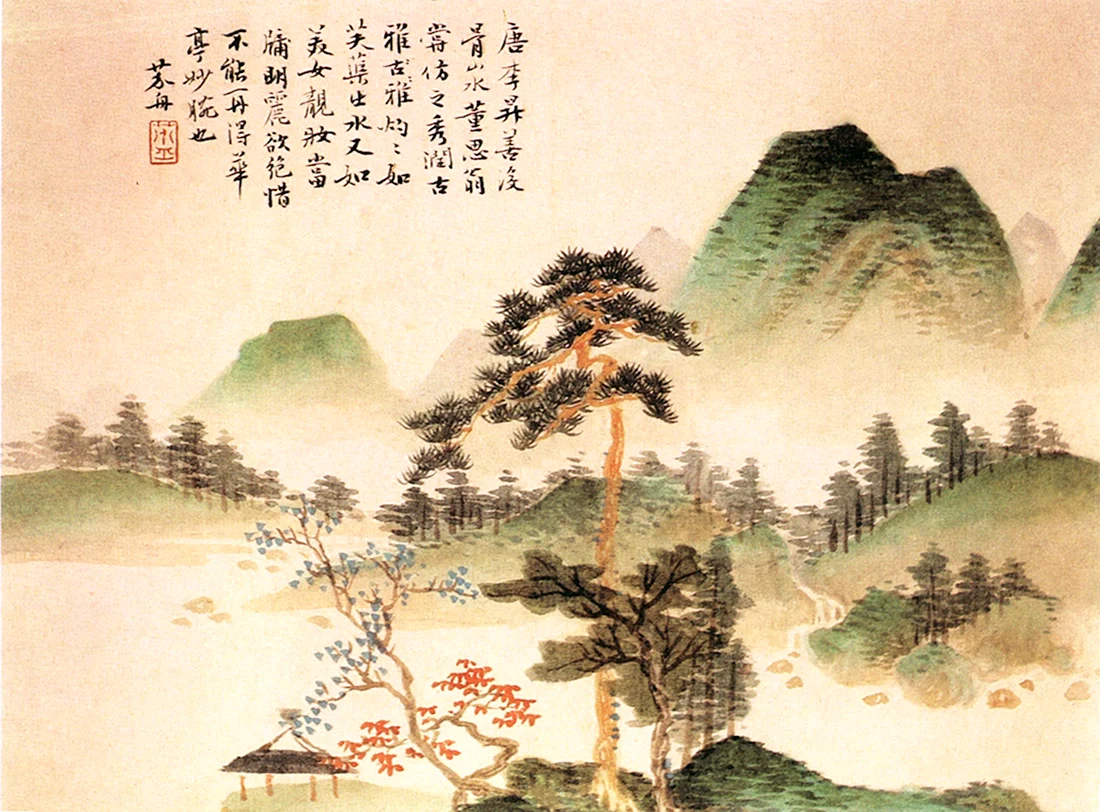 唐李昇善没
骨山水董思翁
嘗仿之秀潤古
雅古雅灼灼如
芙蕖出水又如
美女靚妝當
牖明麗欲絶惜
不能再得華
亭妙腕也
芥舟